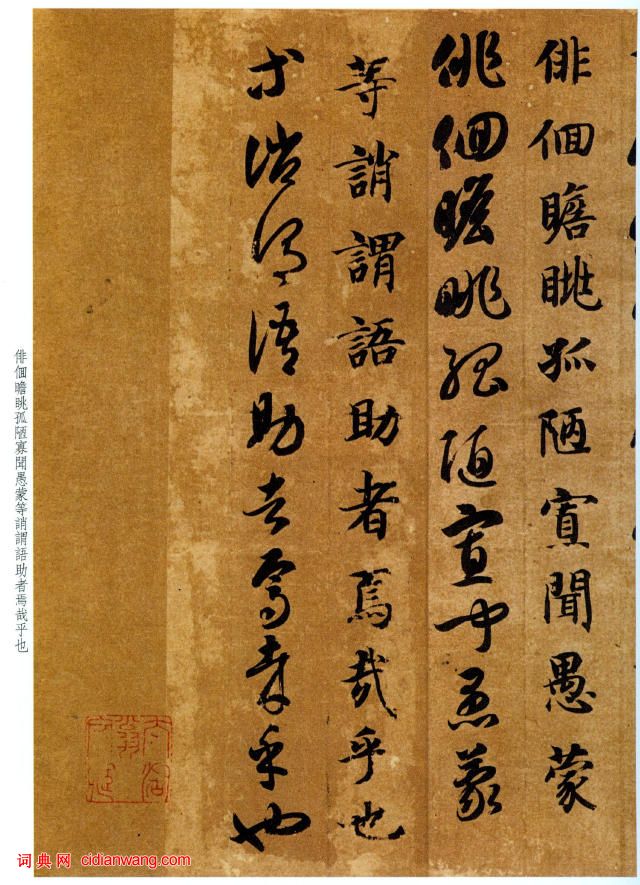 俳佪瞻眺孤陋寡聞愚蒙
俳佪瞻眺孤陋寡聞愚蒙
等誚謂語助者焉哉乎也
等誚謂語助者焉哉乎也
俳佪瞻眺孤陋寡聞愚蒙等誚謂語助者焉哉乎也
词典网 cidianwang.com